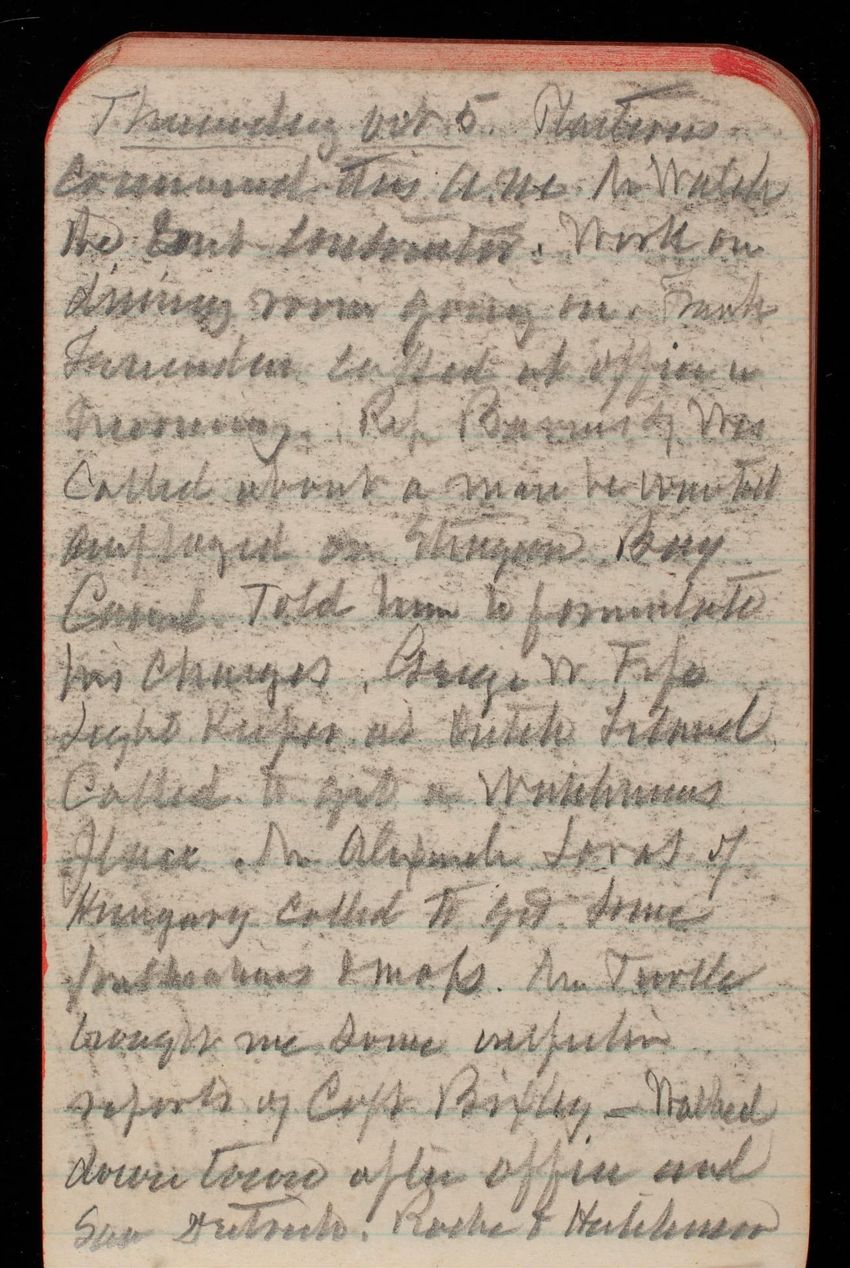 Thursday Oct 5. Plasterers
Commenced this A.M. Mr Walsh
the Contractor. Work on
dining room going on. Frank
called at office in
morning. Rep Barnes of Wis
Called about a man he wanted
employed on Sturgeon Bay
Canal. Told him to formulate
his charges. George W Fife
Light Keeper at Dutch Island
Called to get a Watchmans
place. Mr Alexander of
Hungary called to get some
publications & maps. Mr Turtle
brought me some inspection
reports of Capt Bixby – Walked
down town after office and
Saw Dietrich. Roche & Hutchinson